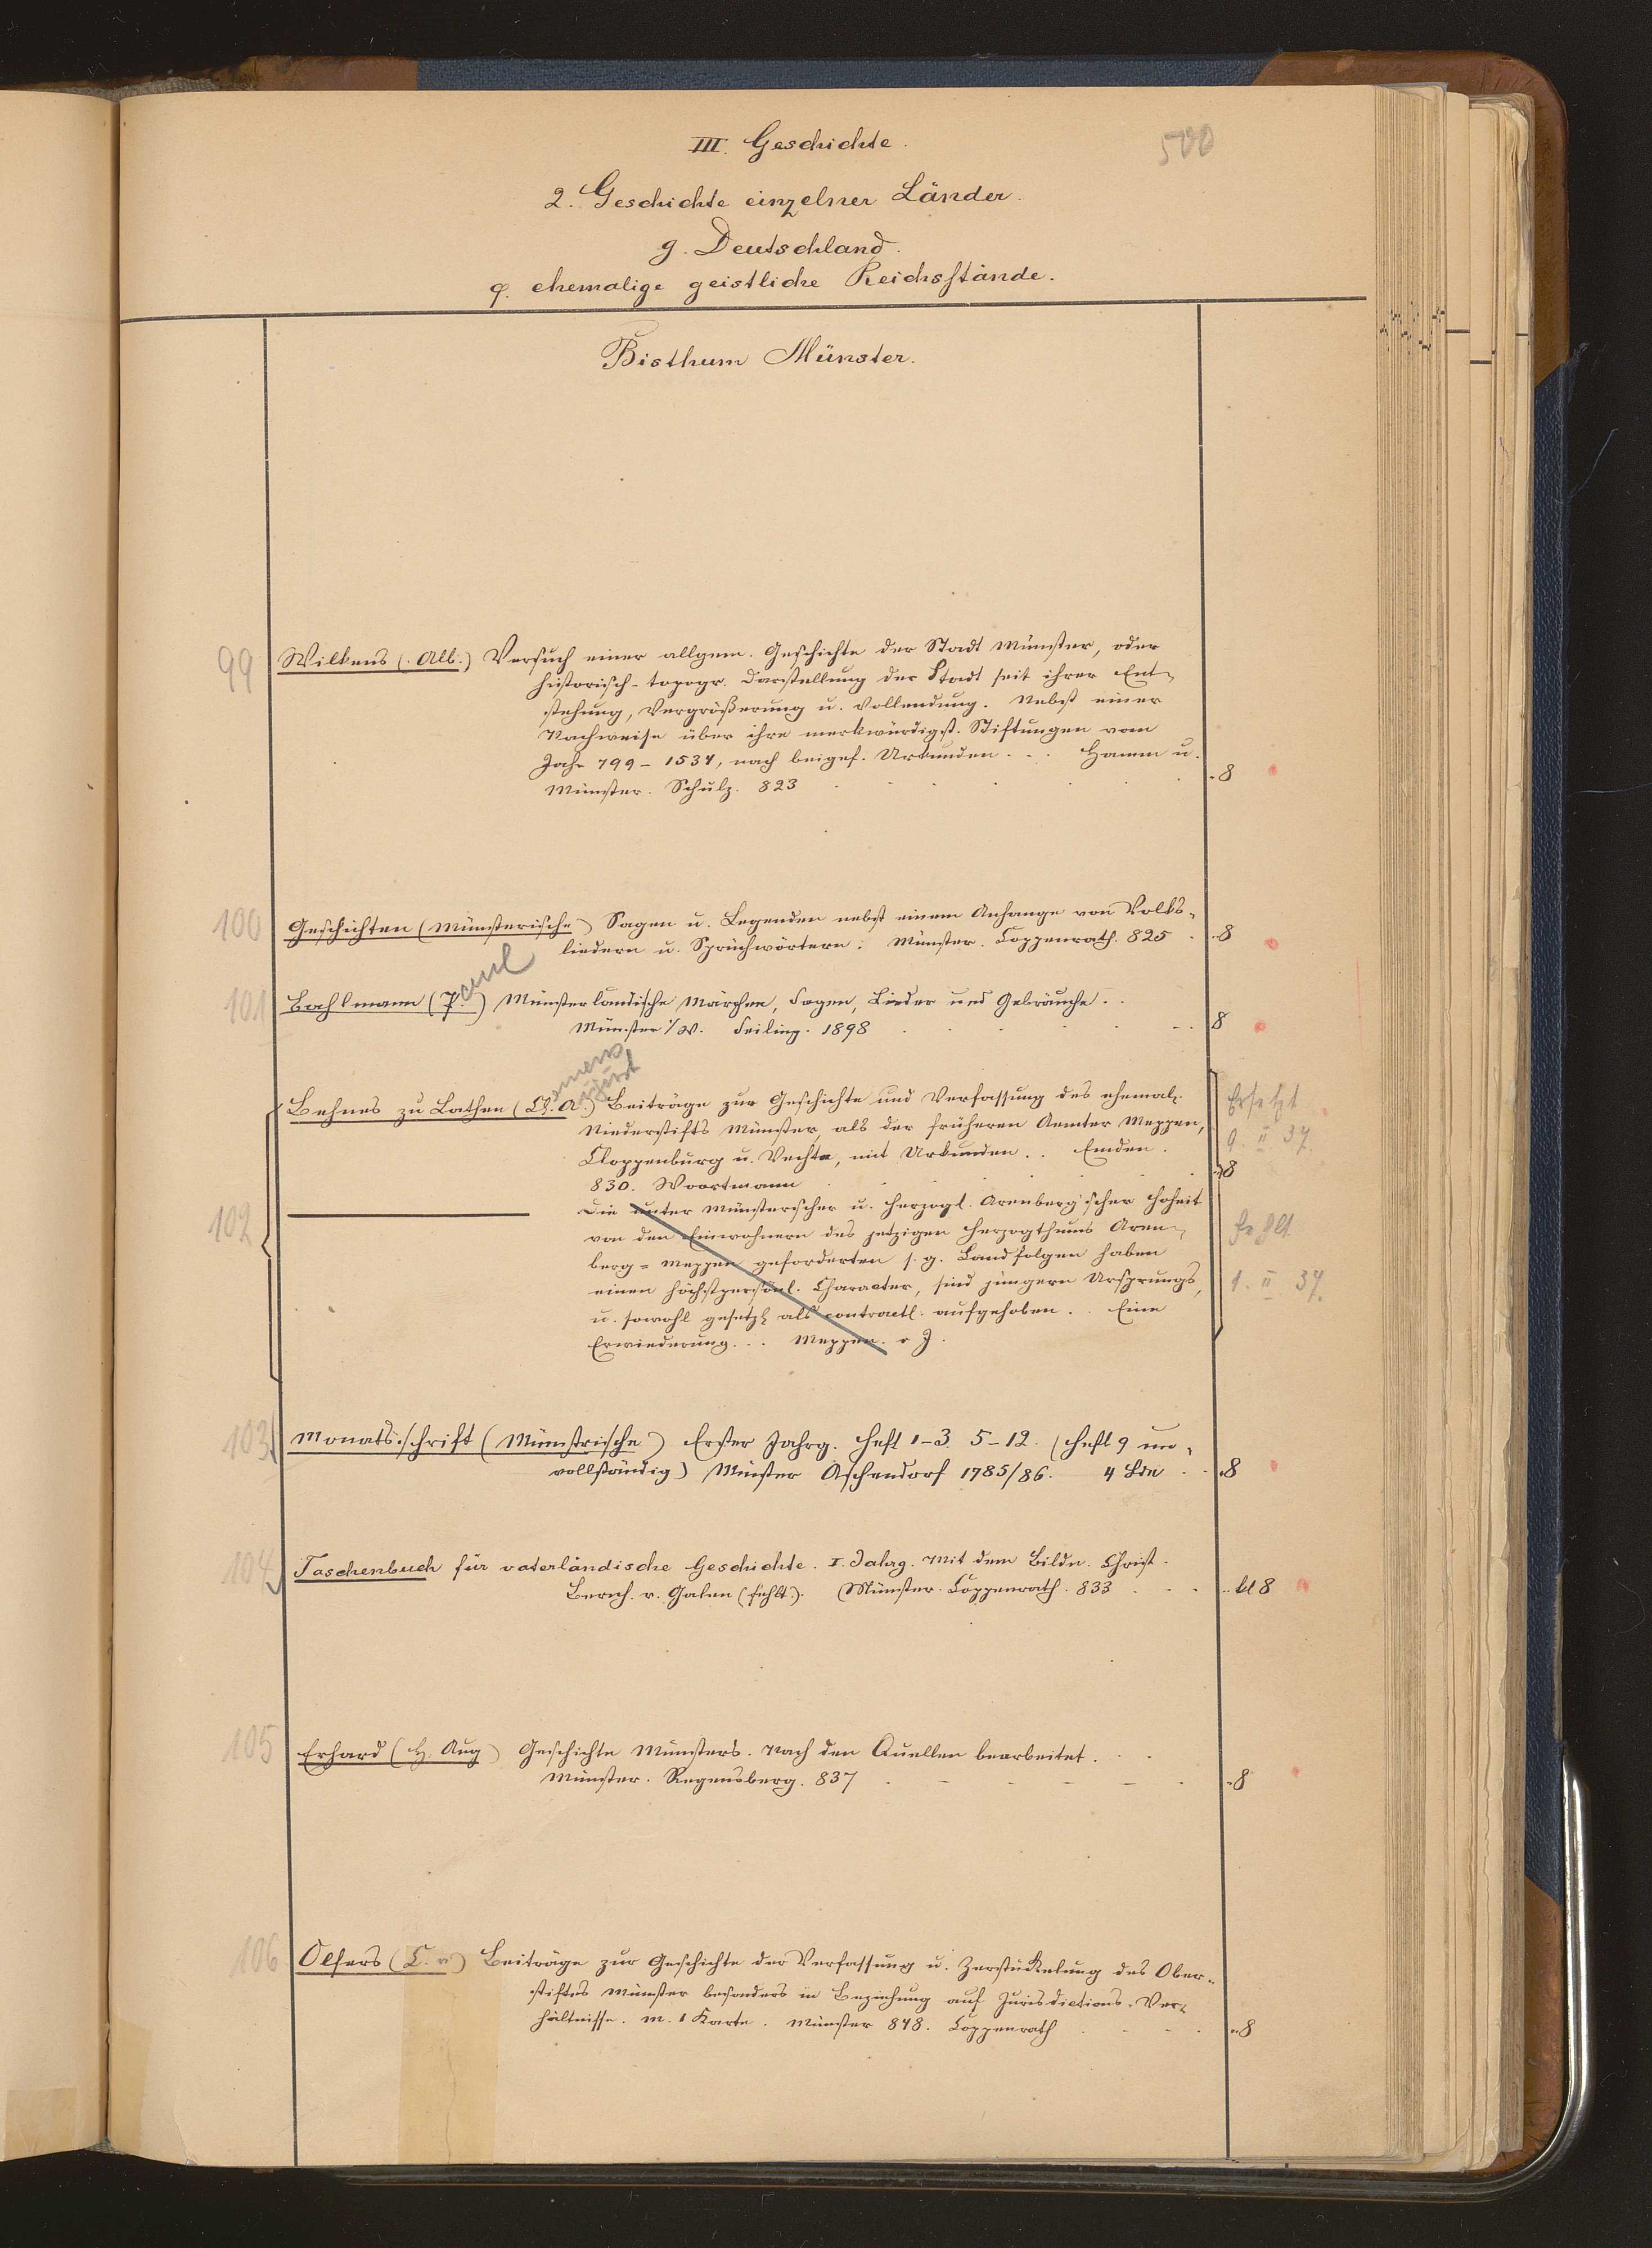 500
III. Geschichte.
2. Geschichte einzelner Länder.
g. Deutschland.
φ. ehemalige geistliche Reichsstände.
Bisthum Münster.
99 Wilkens (Alb.) Versuch einer allgem. Geschichte der Stadt Münster, oder
historisch-topogr. Darstellung der Stadt seit ihrer Ent-
stehung, Vergrößerung u. Vollendung. Nebst einer
Nachweise über ihre merkwürdigst. Stiftungen vom
Jahr 799-1534, nach beigef. Urkunden... Hamm u.
Münster. Schulz. 823 8
100 Geschichten (Münsterische) Sagen u. Legenden nebst einem Anhange von Volks-
liedern u. Sprüchwörtern. Münster. Coppenrath. 825 8
101 Bahlmann (P.aul) Münsterländische Märchen, Sagen, Lieder und Gebräuche..
Münster i/W. Seiling. 1898 8
102 Behnes zu Lathen (Cl. A.) Beiträge zur Geschichte und Verfassung des ehemal.
Niederstifts Münster, als der früheren Aemter Meppen,
Cloppenburg u. Vechta, mit Urkunden.. Emden.
830. Woortmann 8
Ersetzt
9. II 37.
Die unter Münsterscher u. herzogl. Arenberg'scher Hoheit
von den Einwohnern des jetzigen Herzogthums Aren-
berg-Meppen geforderten s. g. Landfolgen haben
einen höchstpersönl. Character, sind jüngern Ursprungs,
u. sowohl gesetzl. als contractl. aufgehoben.. Eine
Erwiederung... Meppen. o J.
fehlt
1. II 37.
103. Monatsschrift (Münstrische) Erster Jahrg. Heft 1-3. 5-12. (Heft 9 un-
vollständig) Münster Aschendorf 1785/86. 4 Bde 8
104 Taschenbuch für vaterländische Geschichte. I. Jahrg. Mit dem Bildn. Christ.
Bernh. v. Galen (fehlt.). Münster. Coppenrath. 833 kl 8
105 Erhard (H. Aug) Geschichte Münsters. Nach den Quellen bearbeitet...
Münster. Regensberg. 837 8
106 Olfers (C. v.) Beiträge zur Geschichte der Verfassung u. Zerstückelung des Ober-
stiftes Münster besonders in Beziehung auf Jurisdictions-Ver-
hältnisse. M. 1 Karte. Münster 848. Coppenrath 8